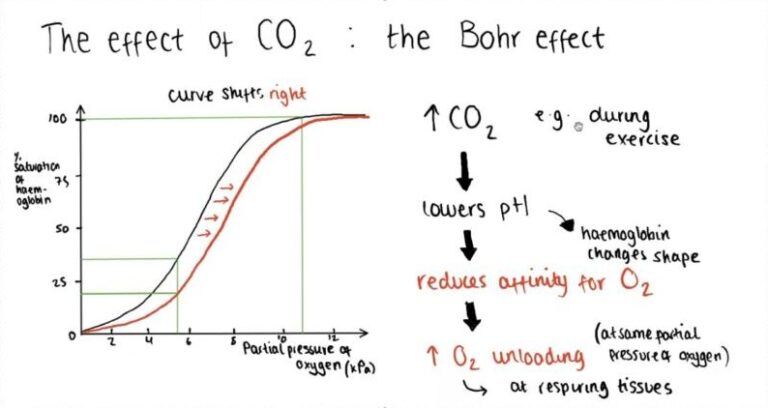 The effect of CO2 : the Bohr effect
curve shifts right
100
75
50
25
0
%
saturation
of
haem-
oglobin
2 4 6 8 10 12
Partial pressure of
oxygen (kPa)
↑ CO2 e.g. during
exercise
lowers pH
haemoglobin
changes shape
reduces affinity for O2
↑ O2 unloading
(at same partial
pressure of oxygen)
↳ at respiring tissues